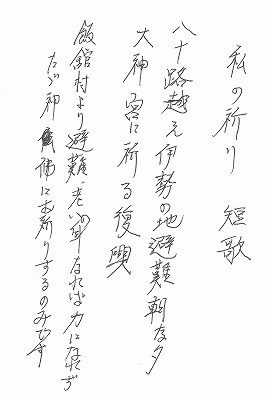 私の祈り 短歌
八十路越え伊勢の地避難朝な夕
大神宮に祈る復興
飯舘村より避難、老い年なれば力になれず
たゞ神佛にお祈りするのみです